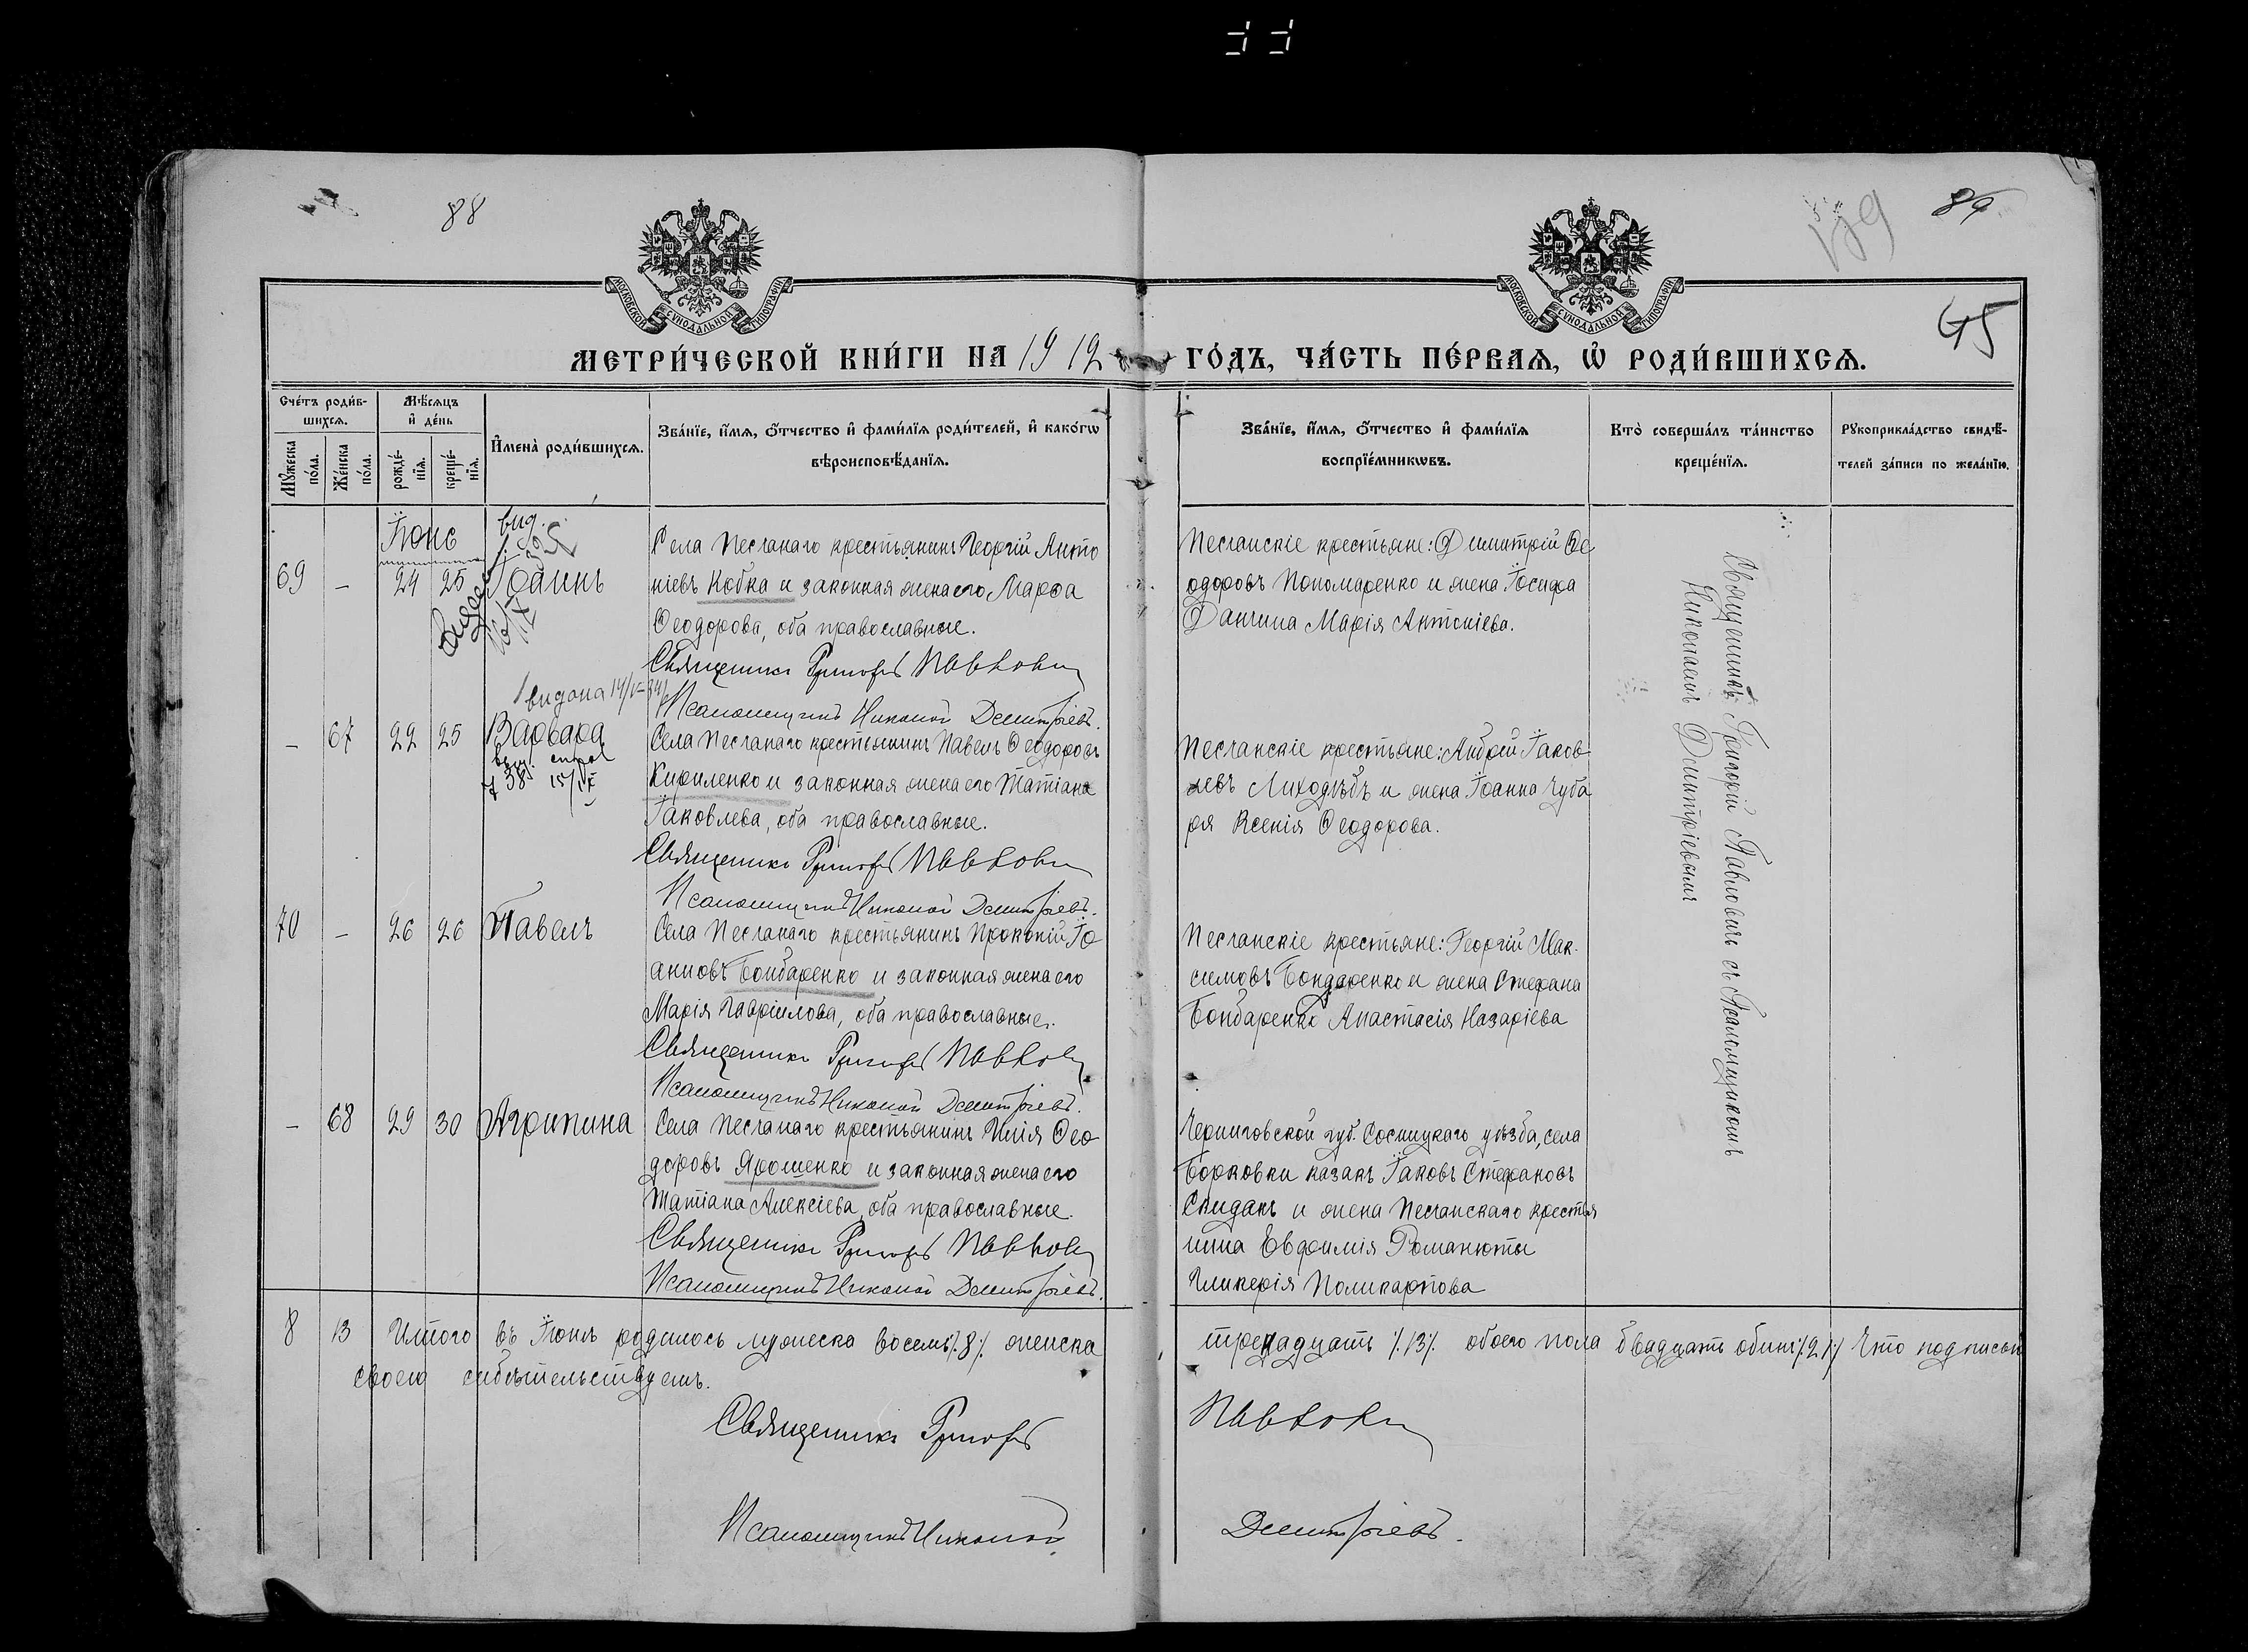 88
89
179
45
МОСКОВСКОЙ СѴНОДАЛЬНОЙ ТИПОГРАФІИ
МОСКОВСКОЙ СѴНОДАЛЬНОЙ ТИПОГРАФІИ
МЕТРИ́ЧЕСКОЙ КНИ́ГИ НА 1912 ГО́ДЪ, ЧА́СТЬ ПЕ́РВАѦ, Ѡ҆ РОДИ́ВШИХСѦ.
Сче́тъ роди́в-
шихсѧ.
Мꙋ́жеска по́ла.
Же́нска по́ла.
Мѣ́сѧцъ
и҆ де́нь
рожде́-
нїѧ.
креще́-
нїѧ.
И҆мена̀ роди́вшихсѧ.
Зва́нїе, и҆́мѧ, ѻ҆́тчество и҆ фами́лїѧ роди́телей, и҆ како́гѡ
вѣроисповѣ́данїѧ.
Зва́нїе, и҆́мѧ, ѻ҆́тчество и҆ фами́лїѧ
воспрїе́мникѡвъ.
Кто̀ соверша́лъ та́инство
креще́нїѧ.
Рꙋкоприкла́дство свидѣ́-
телей за́писи по жела́нїю.
Іюнь
вид.
69 – 24 25 Іоаннъ
Села Песчанаго крестьянинъ Георгій Анто
ніевъ Кобка и законная жена его Марѳа
Ѳеодорова, оба православные.
Священникъ Григорій Павловичъ
Псаломщикъ Николай Дмитріевъ.
Песчанскіе крестьяне: Димитрій Ѳе
одоровъ Пономаренко и жена Іосифа
Марія Антоніева.
видана 14/V-34
– 67 22 25 Варвара
38 15/IX
Села Песчанаго крестьянинъ Павелъ Ѳеодоровъ
Кириленко и законная жена его Татіана
Іаковлева, оба православные.
Священникъ Григорій Павловичъ
Псаломщикъ Николай Дмитріевъ.
Песчанскіе крестьяне: Андрей Іаков-
левъ Лиходѣдъ и жена Іоанна Чуба
ря Ксенія Ѳеодорова.
70 – 26 26 Павелъ
Села Песчанаго крестьянинъ Прокопій Іо
анновъ Бондаренко и законная жена его
Марія Гавріилова, оба православные.
Священникъ Григорій Павловичъ
Псаломщикъ Николай Дмитріевъ.
Песчанскіе крестьяне: Георгій Мак-
симовъ Бондаренко и жена Стефана
Бондаренко Анастасія Назаріева
– 68 29 30 Агрипина
Села Песчанаго крестьянинъ Илія Ѳео
доровъ Ярошенко и законная жена его
Татіана Алексіева, оба православные.
Священникъ Григорій Павловичъ
Псаломщикъ Николай Дмитріевъ.
Черниговской губ. Сосницкаго уѣзда, села
Борковки казакъ Іаковъ Стефановъ
Скиданъ и жена Песчанскаго крестья
нина Евфимія Романюты
Гликерія Поликарпова
Священникъ Григорій Павловичъ съ Псаломщикомъ
Николаемъ Дмитріевымъ
8 13 Итого въ Іюнѣ родилось мужеска восемь /.8/. женска тренадцать /.13/. обоего пола двадцать одинъ /.21/. Что подписью
своею свидѣтельствуемъ.
Священникъ Григорій Павловичъ
Псаломщикъ Николай Дмитріевъ.